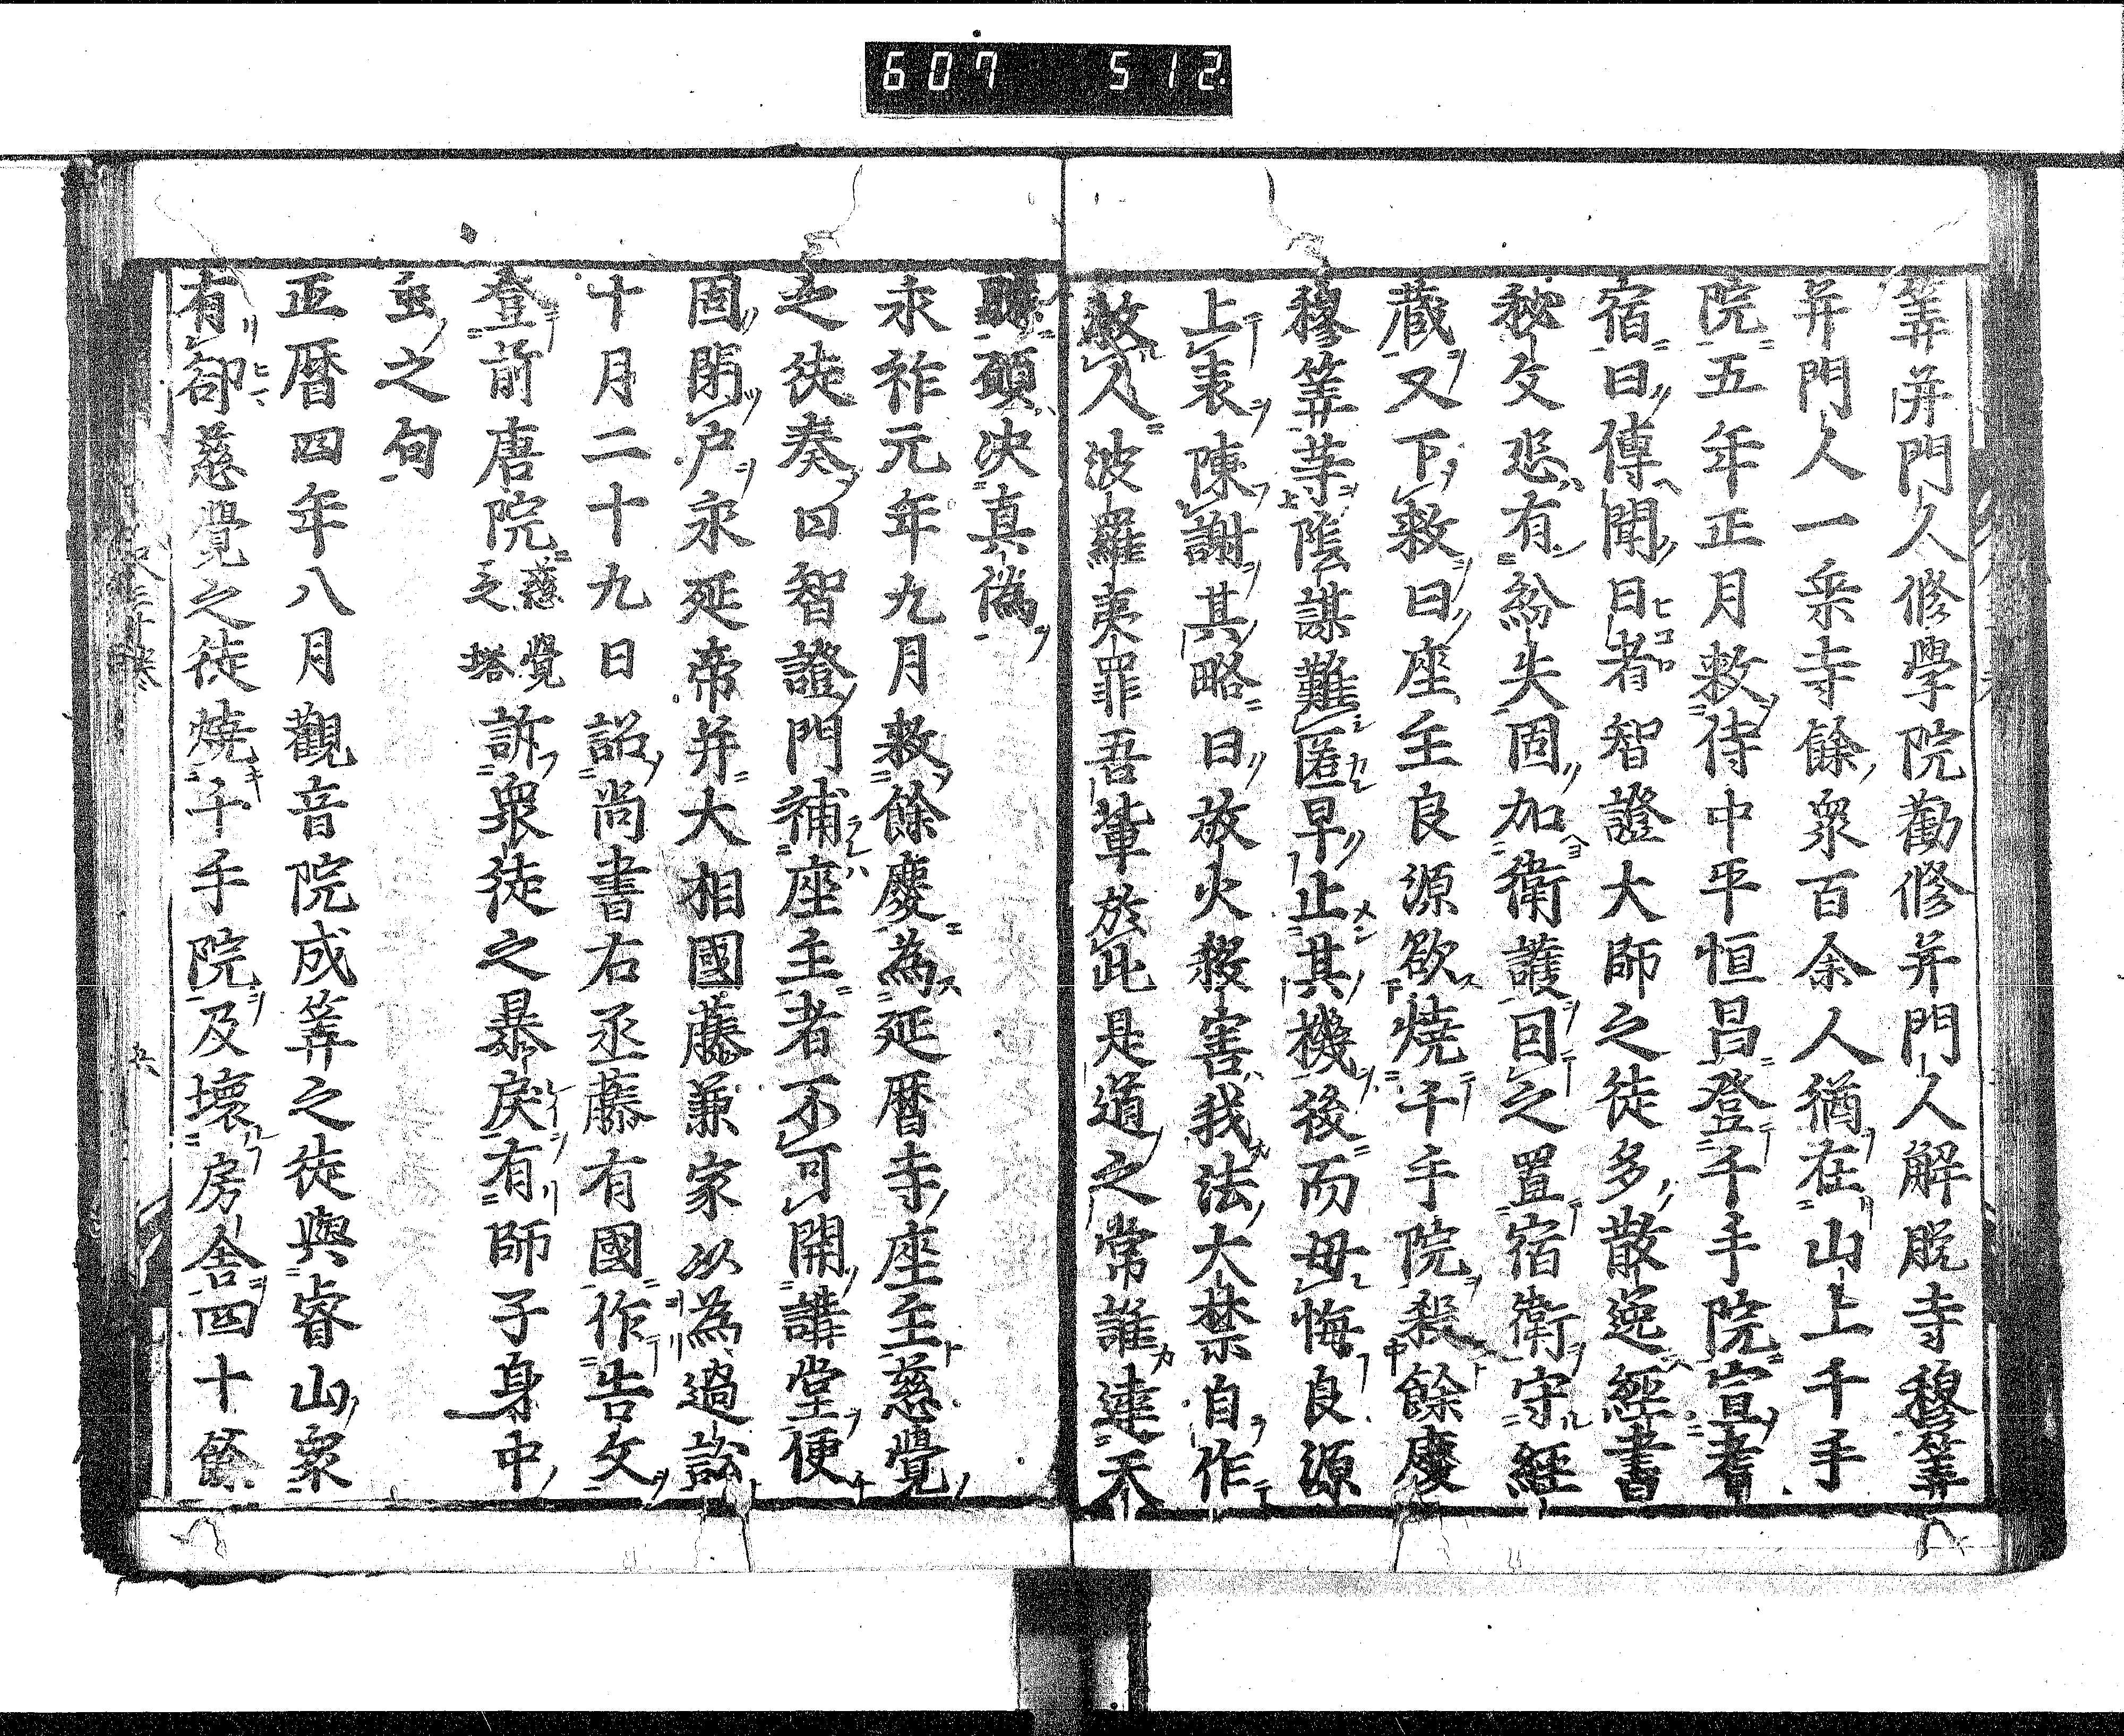 607 512
筭并門人修學院勸修并門人解脫寺穆筭
并門人一乗寺餘衆百余人猶在山上千手
院五年正月敕侍中平恒昌登千手院宣耆
宿曰傳聞日者智證大師之徒多散逸經書
秘文恐有紛失固加衛護回之置宿衛守經
藏又下敕曰座主良源欲燒千手院殺餘慶
穆筭等陰謀難匿早止其機後而毋悔良源
上表陳謝其略曰放火殺害我法大禁自作
教人波羅夷罪吾輩於此是道之常誰達天
頭决真偽
永祚元年九月敕餘慶為延暦寺座主慈覺
之徒奏曰智證門補座主者不可開講堂便
固閉户永延帝并大相國藤兼家以為過訟
十月二十九日詔尚書右丞藤有國作告文
登前唐院慈覺之塔訴衆徒之暴戾有師子身中
虫之句
正暦四年八月觀音院成筭之徒與睿山衆
有郤慈覺之徒燒千手院及壞房舎四十餘